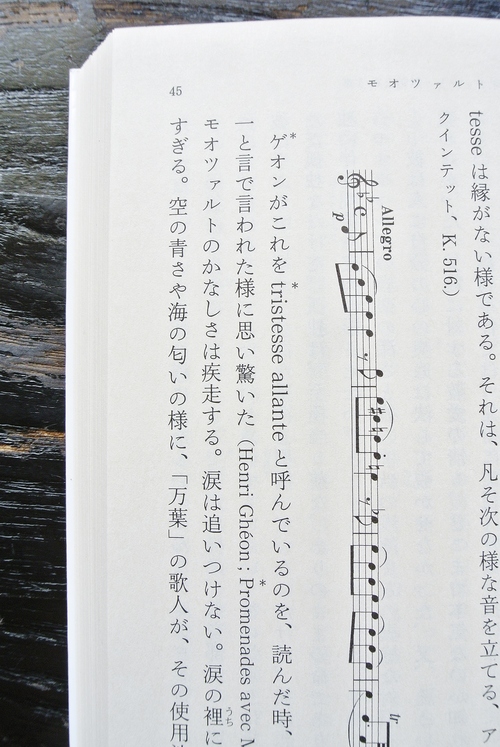 モオツァルト
tesse は縁がない様である。それは、凡そ次の様な音を立てる、ア
クインテット、K. 516.)
Allegro
p
tr
*ゲオンがこれを *tristesse allante と呼んでいるのを、読んだ時、
一と言で言われた様に思い驚いた（Henri Ghéon; *Promenades avec M
モオツァルトのかなしさは疾走する。涙は追いつけない。涙の裡うちに
すぎる。空の青さや海の匂いの様に、「万葉」の歌人が、その使用
45